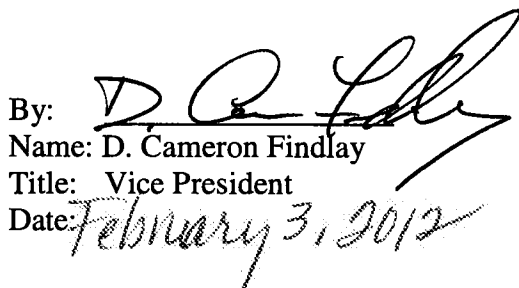 By: D. Cam Findlay
Name: D. Cameron Findlay
Title: Vice President
Date: February 3, 2012